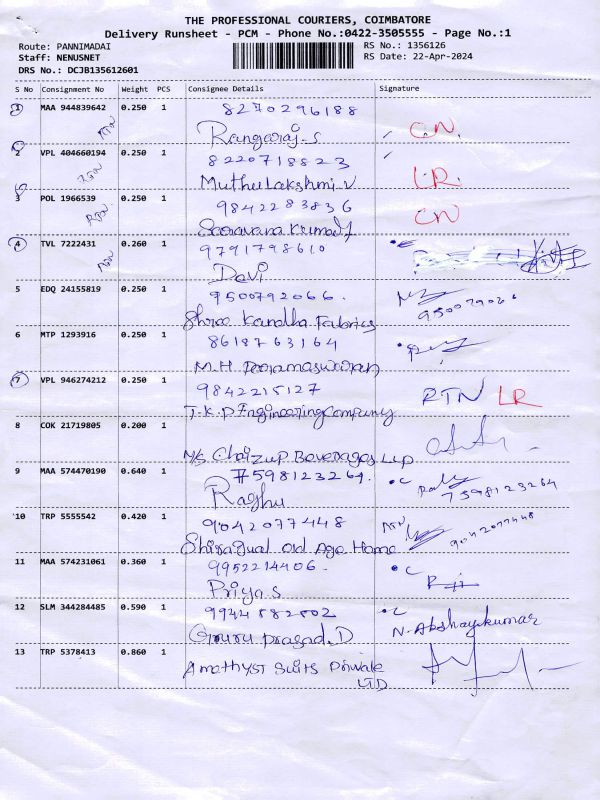 THE PROFESSIONAL COURIERS, COIMBATORE
Delivery Runsheet - PCM - Phone No.:0422-3505555 - Page No.:1
Route: PANNIMADAI
RS No.: 1356126
Staff: NENUSNET
RS Date: 22-Apr-2024
DRS No.: DCJB135612601
S No Consignment No Weight PCS Consignee Details Signature
1 MAA 944839642 0.250 1 8270296188
RTN Rangaraj.S CN.
2 VPL 404660194 0.250 1 8220718823
RTN Muthulakshmi.V LR.
3 POL 1966539 0.250 1 9842283836
RTN Saravana Kumar CN
4 TVL 7222431 0.260 1 9791798610
RTN Devi
5 EDQ 24155819 0.250 1 9500792066.
Shree Kandha Fabrics
6 MTP 1293916 0.250 1 8618763164
M.H. Parameswaran
7 VPL 946274212 0.250 1 9842215127 RTN LR
T.K.P Engineering Company
8 COK 21719805 0.200 1
M/s. Chaizup Beverages LLP
9 MAA 574470190 0.640 1 7598123264. 7598123264
Raghu
10 TRP 5555542 0.420 1 9042077448 9042077448
Old Age Home
11 MAA 574231061 0.360 1 9952214406.
Priya.S
12 SLM 344284485 0.590 1 9944582502
Guru Prasad.D N. Akshaykumar
13 TRP 5378413 0.860 1 Amethyst Suits Private
LTD